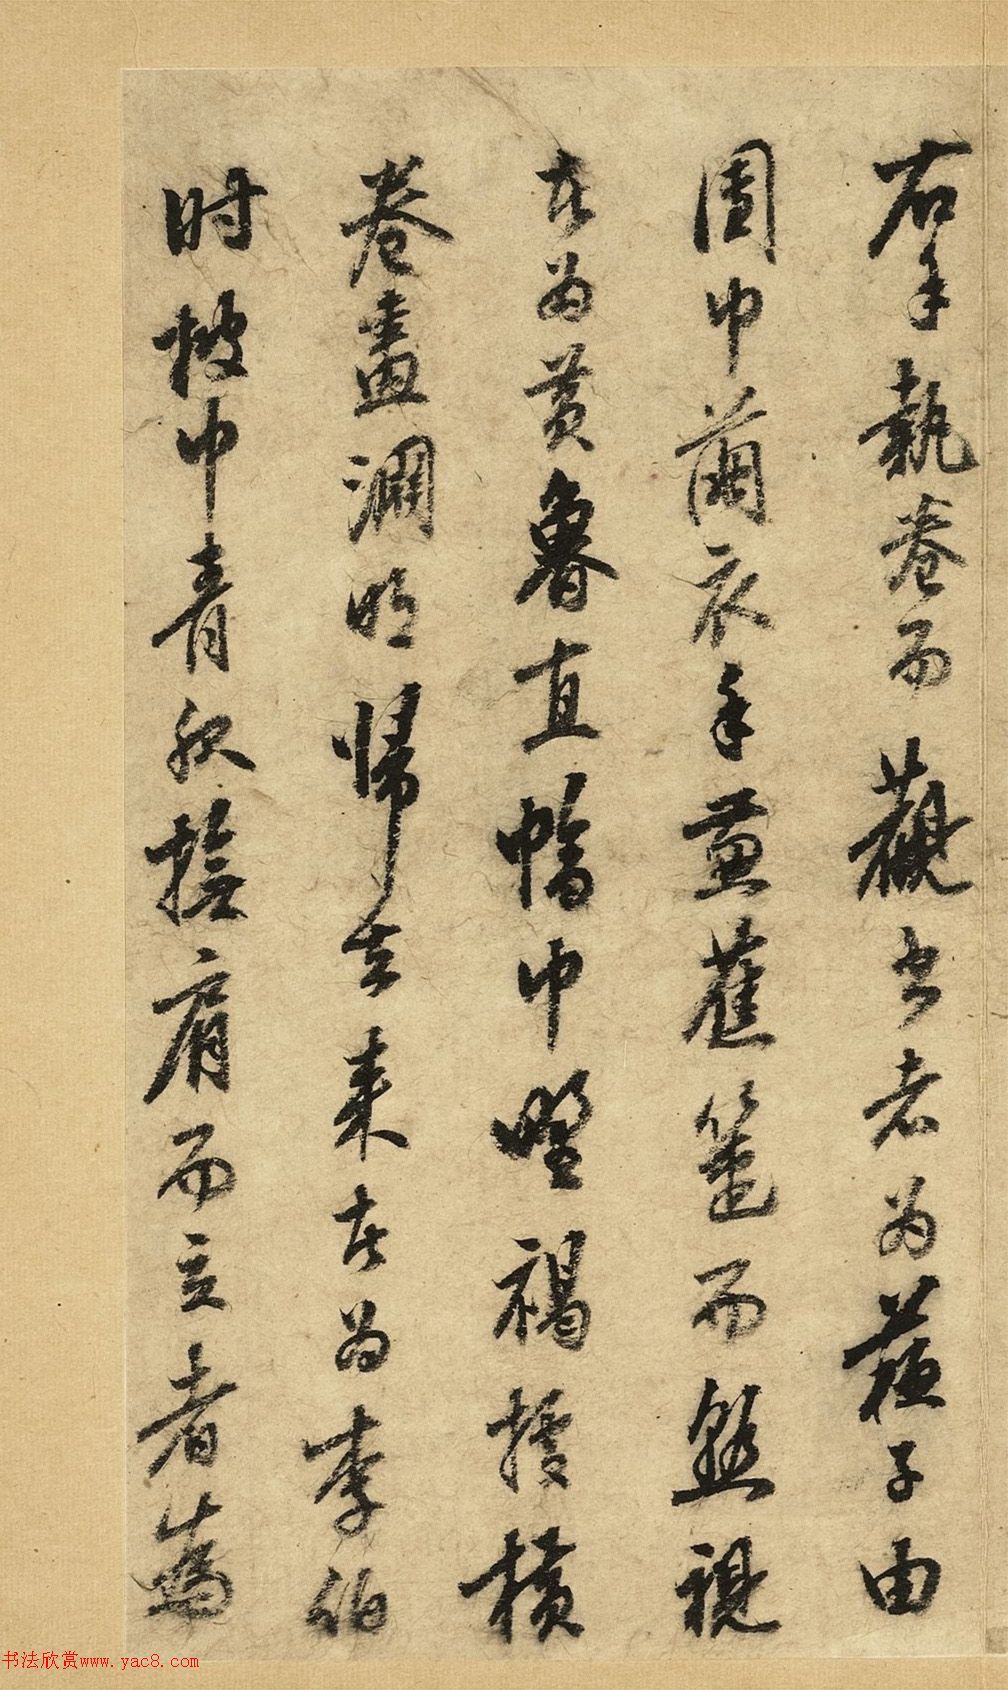 右手執卷而觀書者為蘇子由
團巾繭衣手蕉箑而熟視
者為黃魯直幅巾野褐據橫
卷畫淵明歸去來者為李伯
時披巾青服撫肩而立者為
书法欣赏www.yac8.com